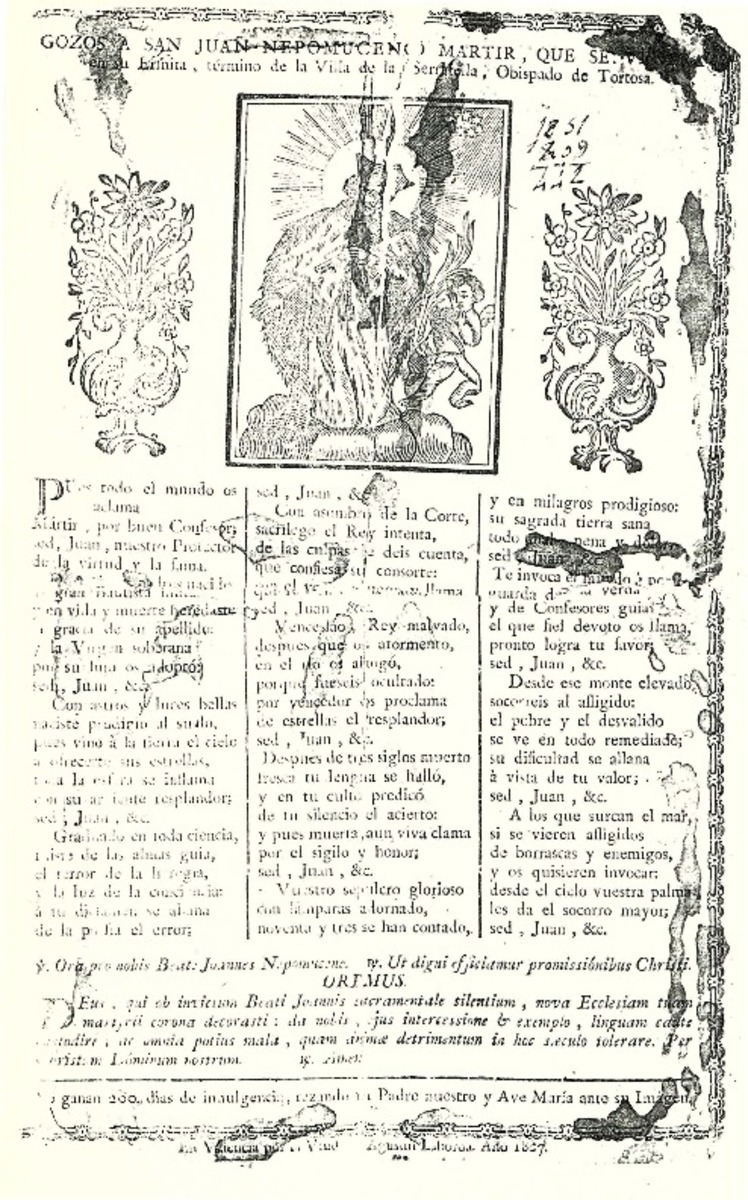 GOZOS A SAN JUAN NEPOMUCENO MARTIR, QUE SE
en su Ermita, término de la Villa de la Serratella, Obispado de Tortosa.
1851
1809
PUes todo el mundo os
aclama
Mártir, por buen Confesor;
sed, Juan, nuestro Protector
de la virtud y la fama.
gran Bautista
y en vida y muerte heredaste
la gracia de su apellido:
y la Virgen soberana
por su hijo os adoptó;
sed, Juan, &c.
Con astros y luces bellas
naciste prodigio al suelo,
pues vino à la tierra el cielo
a ofrecerte sus estrellas,
toda la esfera se inflama
con su ardiente resplandor;
sed, Juan, &c.
Graduado en toda ciencia,
fuiste de las almas guia,
el terror de la heregia,
y la luz de la conciencia:
à tu dictamen se allana
de la porfia el error;
sed, Juan, &c.
Con asombro de la Corte,
sacrilego el Rey intenta,
de las culpas le deis cuenta,
que confiesa su consorte:
llama
sed, Juan, &c.
Venceslao, Rey malvado,
despues que os atormento,
en el rio os ahogó,
porque fueseis ocultado:
por vencedor os proclama
de estrellas el resplandor;
sed, Juan, &c.
Despues de tres siglos muerto
fresca tu lengua se halló,
y en tu culto predicó
de tu silencio el acierto:
y pues muerta, aun viva clama
por el sigilo y honor;
sed, Juan, &c.
Vuestro sepulcro glorioso
con lámparas adornado,
noventa y tres se han contado,
y en milagros prodigioso:
su sagrada tierra sana
todo pena y
sed, Juan, &c.
Te invoca el mundo à
guarda
y de Confesores guia:
el que fiel devoto os llama,
pronto logra tu favor;
sed, Juan, &c.
Desde ese monte elevado,
socorreis al afligido:
el pobre y el desvalido
se ve en todo remediado;
su dificultad se allana
à vista de tu valor;
sed, Juan, &c.
A los que surcan el mar,
si se vieren afligidos
de borrascas y enemigos,
y os quisieren invocar:
desde el cielo vuestra palma
les da el socorro mayor;
sed, Juan, &c.
℣. Ora pro nobis Beate Joannes Nepomucene. ℟. Ut digni efficiamur promissiónibus Christi.
OREMUS.
DEus, qui ob invictum Beati Joannis sacramentale silentium, nova Ecclesiam tuam
martyrii corona decorasti: da nobis, ejus intercessione & exemplo, linguam caute
custodire, ac omnia potius mala, quam animæ detrimentum in hoc sæculo tolerare. Per
Christum Dominum nostrum. ℟. Amen.
Se ganan 200. dias de indulgencia, rezando un Padre nuestro y Ave María ante su Imagen.
En Valencia por la Viud Agustin Laborda. Año 1827.